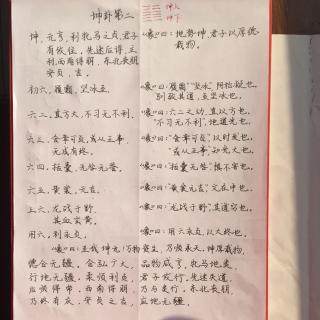 坤卦第二
坤上
坤下
坤，元亨，利牝马之贞，君子
有攸往，先迷后得，主
利，西南得朋，东北丧朋，
安贞，吉。
《象》曰：地势坤，君子以厚德
载物。
初六，履霜，坚冰至。
《象》曰：“履霜”“坚冰”，阴始凝也，
驯致其道，至坚冰也。
六二，直方大，不习无不利。
《象》曰：六二之动，直以方也，
“不习无不利”，地道光也。
六三，含章可贞，或从王事，
无成有终。
《象》曰：“含章可贞”，以时发也，
“或从王事”，知光大也。
六四，括囊，无咎无誉。
《象》曰：“括囊无咎”，慎不害也。
六五，黄裳，元吉。
《象》曰：“黄裳元吉”，文在中也。
上六，龙战于野，
其血玄黄。
《象》曰：“龙战于野”，其道穷也。
用六，利永贞。
《象》曰：用六永贞，以大终也。
《彖》曰：至哉坤元，万物资生，乃顺承天，坤厚载物，
德合无疆，含弘广大，品物咸亨，牝马地类，
行地无疆，柔顺利贞，君子攸行，先迷失道，
后顺得常，西南得朋，乃与类行，东北丧朋，
乃终有庆，安贞之吉，应地无疆。